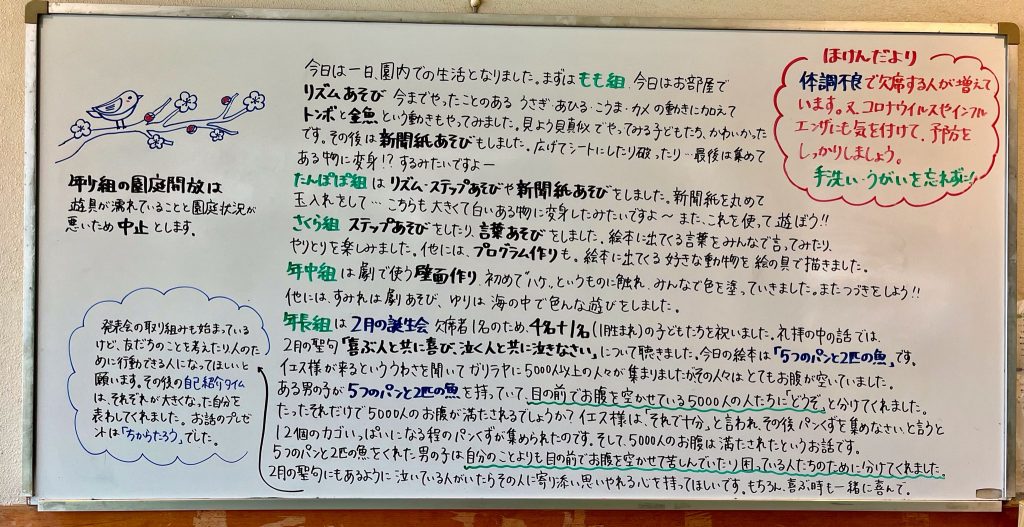 今日は一日、園内での生活となりました。まずは もも組、今日はお部屋で
リズムあそび 今までやったことのある うさぎ・あひる・こうま・カメの動きに加えて
トンボと金魚という動きもやってみました。見よう見真似でやってみる子どもたち、かわいかった
です。その後は新聞紙あそびもしました。広げてシートにしたり破ったり…最後は集めて
ある物に変身!?するみたいですよー
たんぽぽ組はリズム・ステップあそびや新聞紙あそびをしました。新聞紙を丸めて
玉入れをして…こちらも大きくて白いある物に変身したみたいですよ〜また、これを使って遊ぼう!!
さくら組 ステップあそびをしたり、言葉あそびをしました。絵本に出てくる言葉をみんなで言ってみたり、
やりとりを楽しみました。他には、プログラム作りも。絵本に出てくる好きな動物を絵の具で描きました。
年中組は劇で使う壁面作り、初めて"ハケ"というものに触れ、みんなで色を塗っていきました。またつづきをしよう!!
他には、すみれは劇あそび、ゆりは海の中で色んな遊びをしました。
年長組は2月の誕生会 欠席者1名のため、4名+1名(1月生まれ)の子どもたちを祝いました。礼拝の中の話では、
2月の聖句「喜ぶ人と共に喜び、泣く人と共に泣きなさい」について聴きました。今日の絵本は「5つのパンと2匹の魚」です。
イエス様が来るといううわさを聞いてガリラヤに5000人以上の人々が集まりましたがその人々はとてもお腹が空いていました。
ある男の子が5つのパンと2匹の魚を持っていて、目の前でお腹を空かせている5000人の人たちに「どうぞ」と分けてくれました。
たったそれだけで5000人のお腹が満たされるでしょうか?イエス様は、「それで十分」と言われ、その後パンくずを集めなさいと言うと
12個のカゴいっぱいになる程のパンくずが集められたのです。そして、5000人のお腹は満たされたというお話です。
5つのパンと2匹の魚をくれた男の子は自分のことよりも目の前でお腹を空かせて苦しんでいたり困っている人たちのために分けてくれました。
2月の聖句にもあるように泣いている人がいたらその人に寄り添い思いやれる心を持ってほしいです。もちろん、喜ぶ時も一緒に喜んで。
の園庭開放は
遊具が濡れていることと園庭状況が
悪いため中止とします。
発表会の取り組みも始まっている
けど、友だちのことを考えたり人のた
めに行動できる人になってほしいと
願います。その後の自己紹介タイム
は、それぞれが大きくなった自分を
表わしてくれました。お話のプレゼ
ントは「ちからたろう」でした。
ほけんだより
体調不良で欠席する人が増えて
います。又、コロナウイルスやインフル
エンザにも気を付けて、予防を
しっかりしましょう。
手洗い・うがいを忘れずに!!